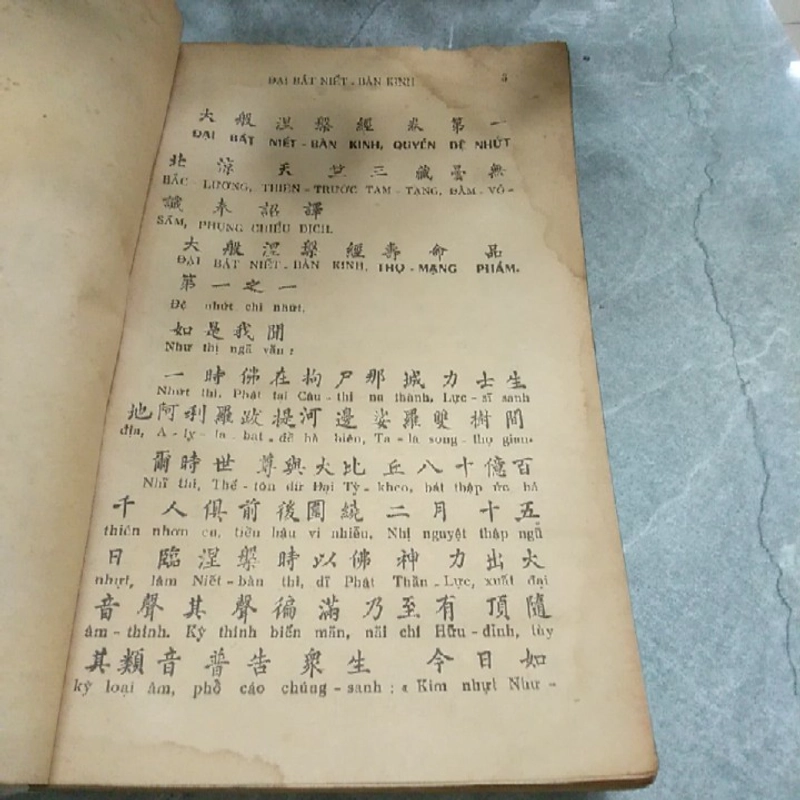 ĐẠI BÁT NIẾT-BÀN KINH 5
大般涅槃經卷第一
ĐẠI BÁT NIẾT-BÀN KINH, QUYỂN ĐỆ NHỨT
北涼天竺三藏曇無
BẮC-LƯƠNG, THIÊN-TRƯỚC TAM-TẠNG, ĐÀM-VÔ-
讖奉詔譯
SẤM, PHỤNG CHIẾU DỊCH.
大般涅槃經壽命品
ĐẠI BÁT NIẾT-BÀN KINH, THỌ-MẠNG PHẨM.
第一之一
Đệ nhứt chi nhứt.
如是我聞
Như thị ngã văn:
一時佛在拘尸那城力士生
Nhứt thì, Phật tại Câu-thi na thành, Lực-sĩ sanh
地阿利羅跋提河邊娑羅雙樹間
địa, A-ly-la-bạt-đề hà biên, Ta-la song-thọ gian.
爾時世尊與大比丘八十億百
Nhĩ thì, Thế-tôn dữ Đại Tỳ-kheo, bát thập ức bá
千人俱前後圍繞二月十五
thiên nhơn cu, tiền hậu vi nhiễu, Nhị nguyệt thập ngũ
日臨涅槃時以佛神力出大
nhựt, lâm Niết-bàn thì, dĩ Phật Thần-Lực, xuất đại
音聲其聲徧滿乃至有頂隨
âm-thinh. Kỳ thinh biến mãn, nãi chí Hữu-đỉnh, tùy
其類音普告衆生今日如
kỳ loại âm, phổ cáo chúng-sanh: « Kim nhựt Như-